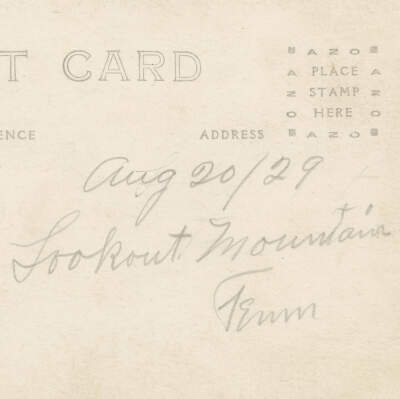 T CARD
AZO
PLACE
STAMP
HERE
AZO
ENCE ADDRESS
Aug 20/29
Lookout Mountain
Tenn